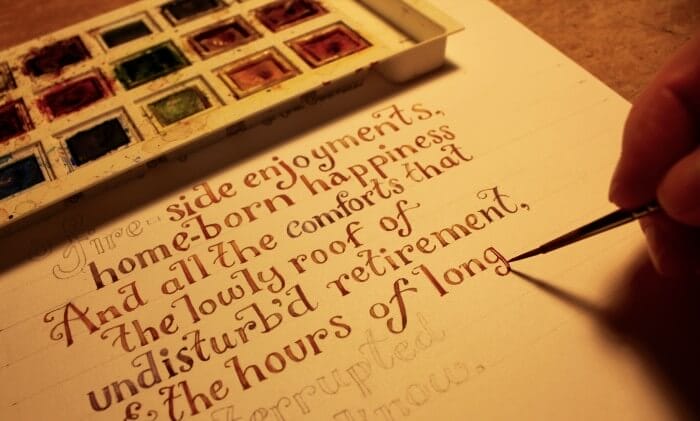 Fire-side enjoyments,
home-born happiness
And all the comforts that
the lowly roof of
undisturb'd retirement,
& the hours of long
terrupted
know.